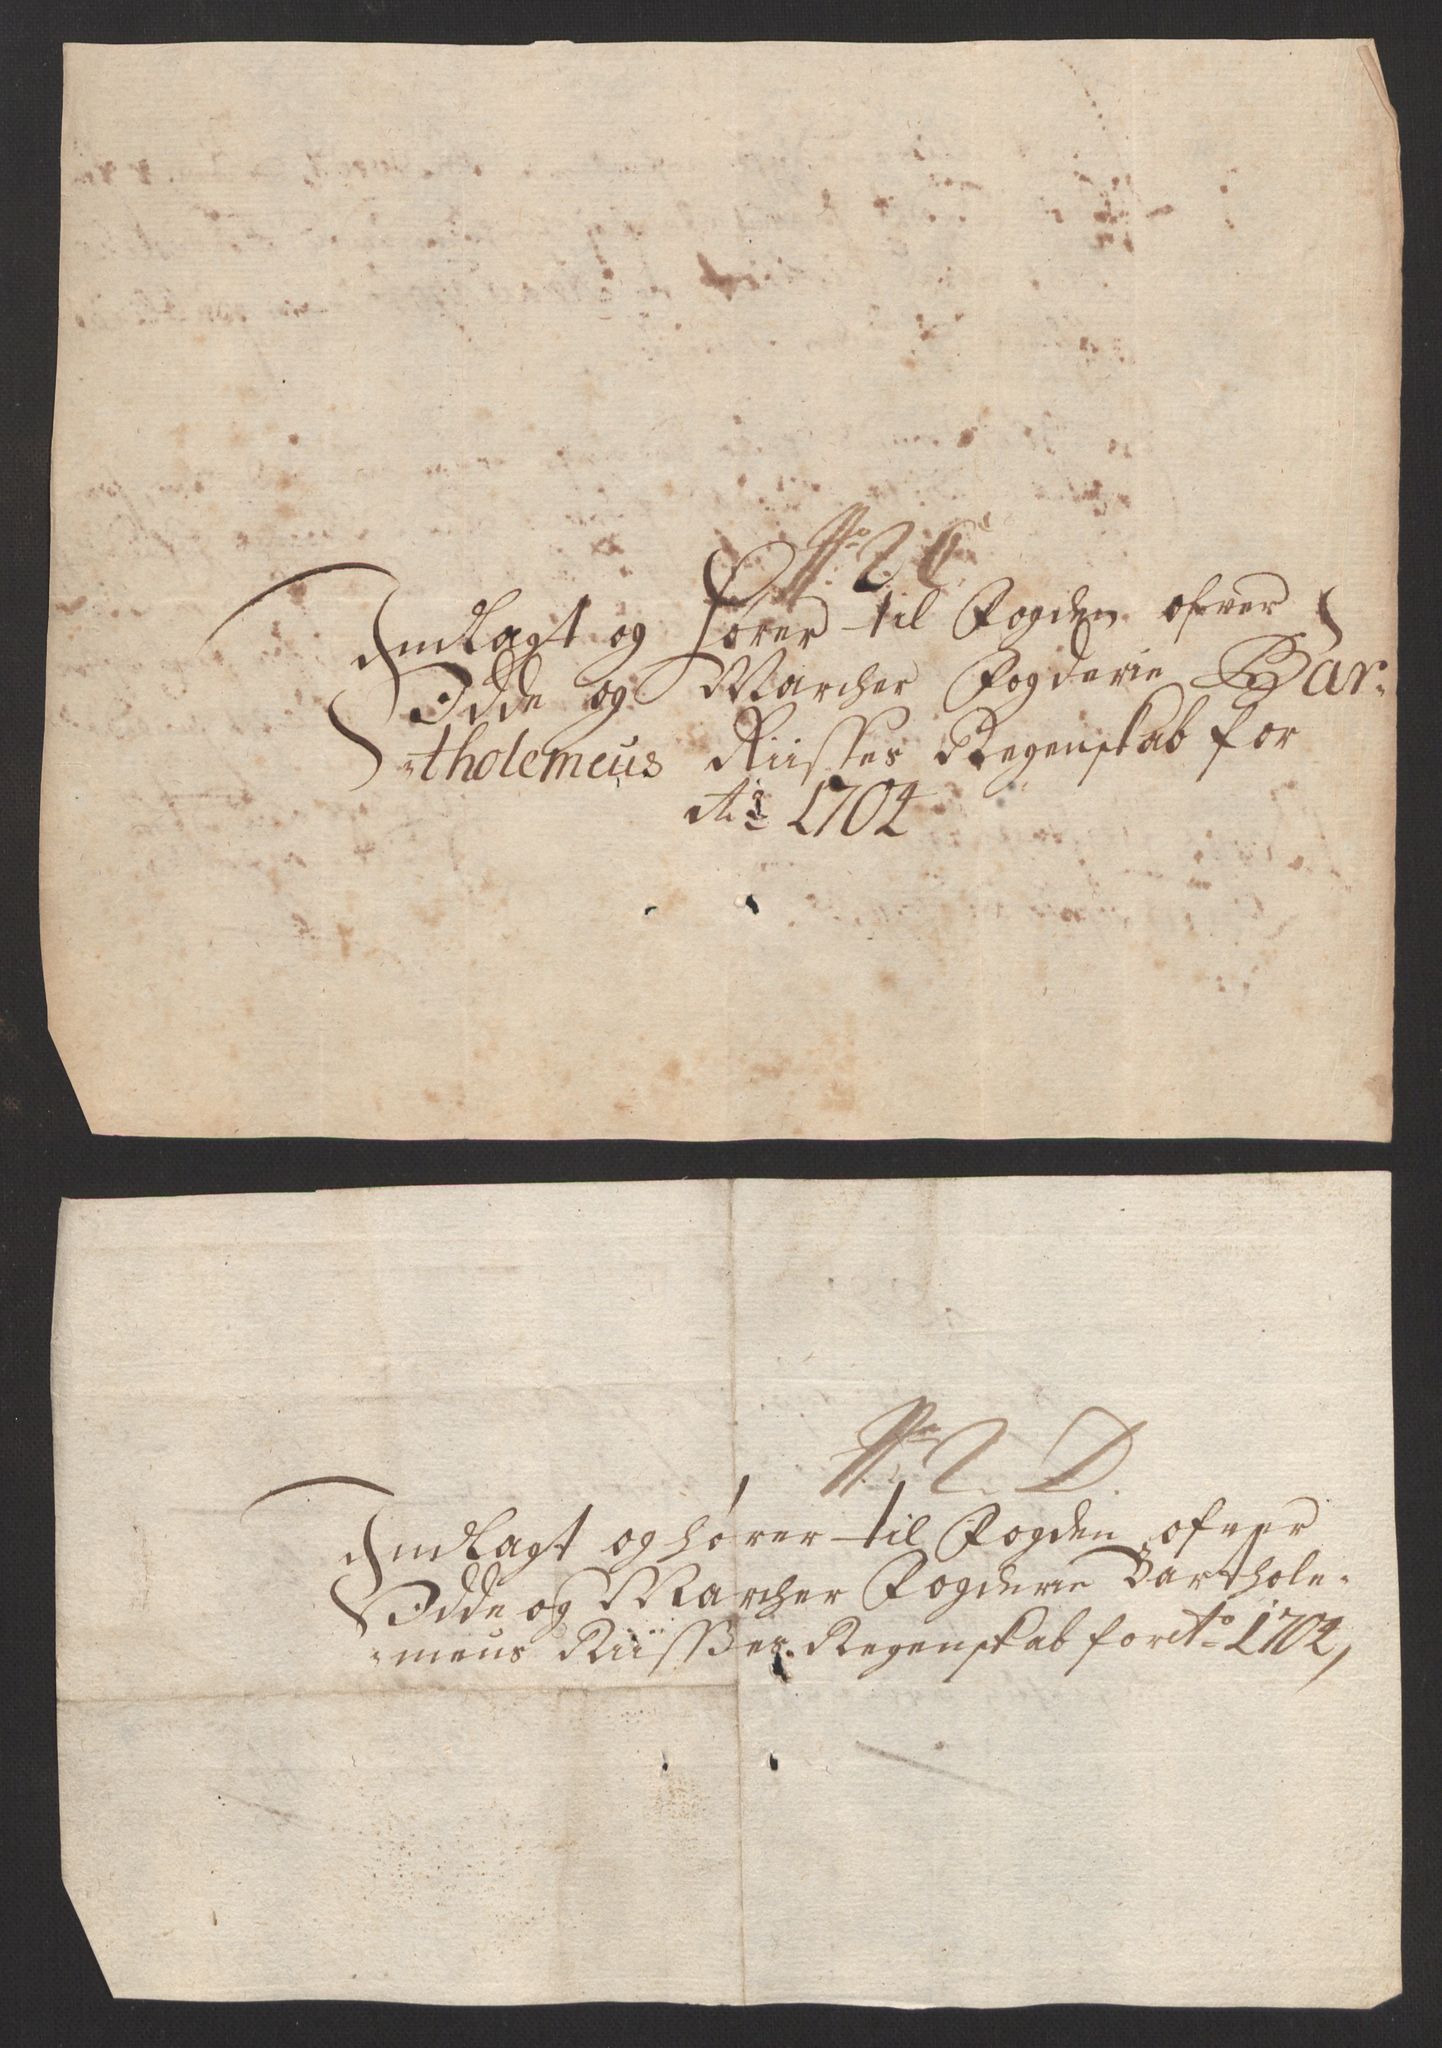 No 2 C
Indlagt og hörer til Fogden ofver
Idde og Marcher Fogderie Bar-
tholemeus Riisses Regenskab for
Ao 1704
No 2. D.
Indlagt og hörer til Fogden ofver
Idde og Marcher Fogderie Barthole-
meus Riisses Regenskab for Ao 1704,